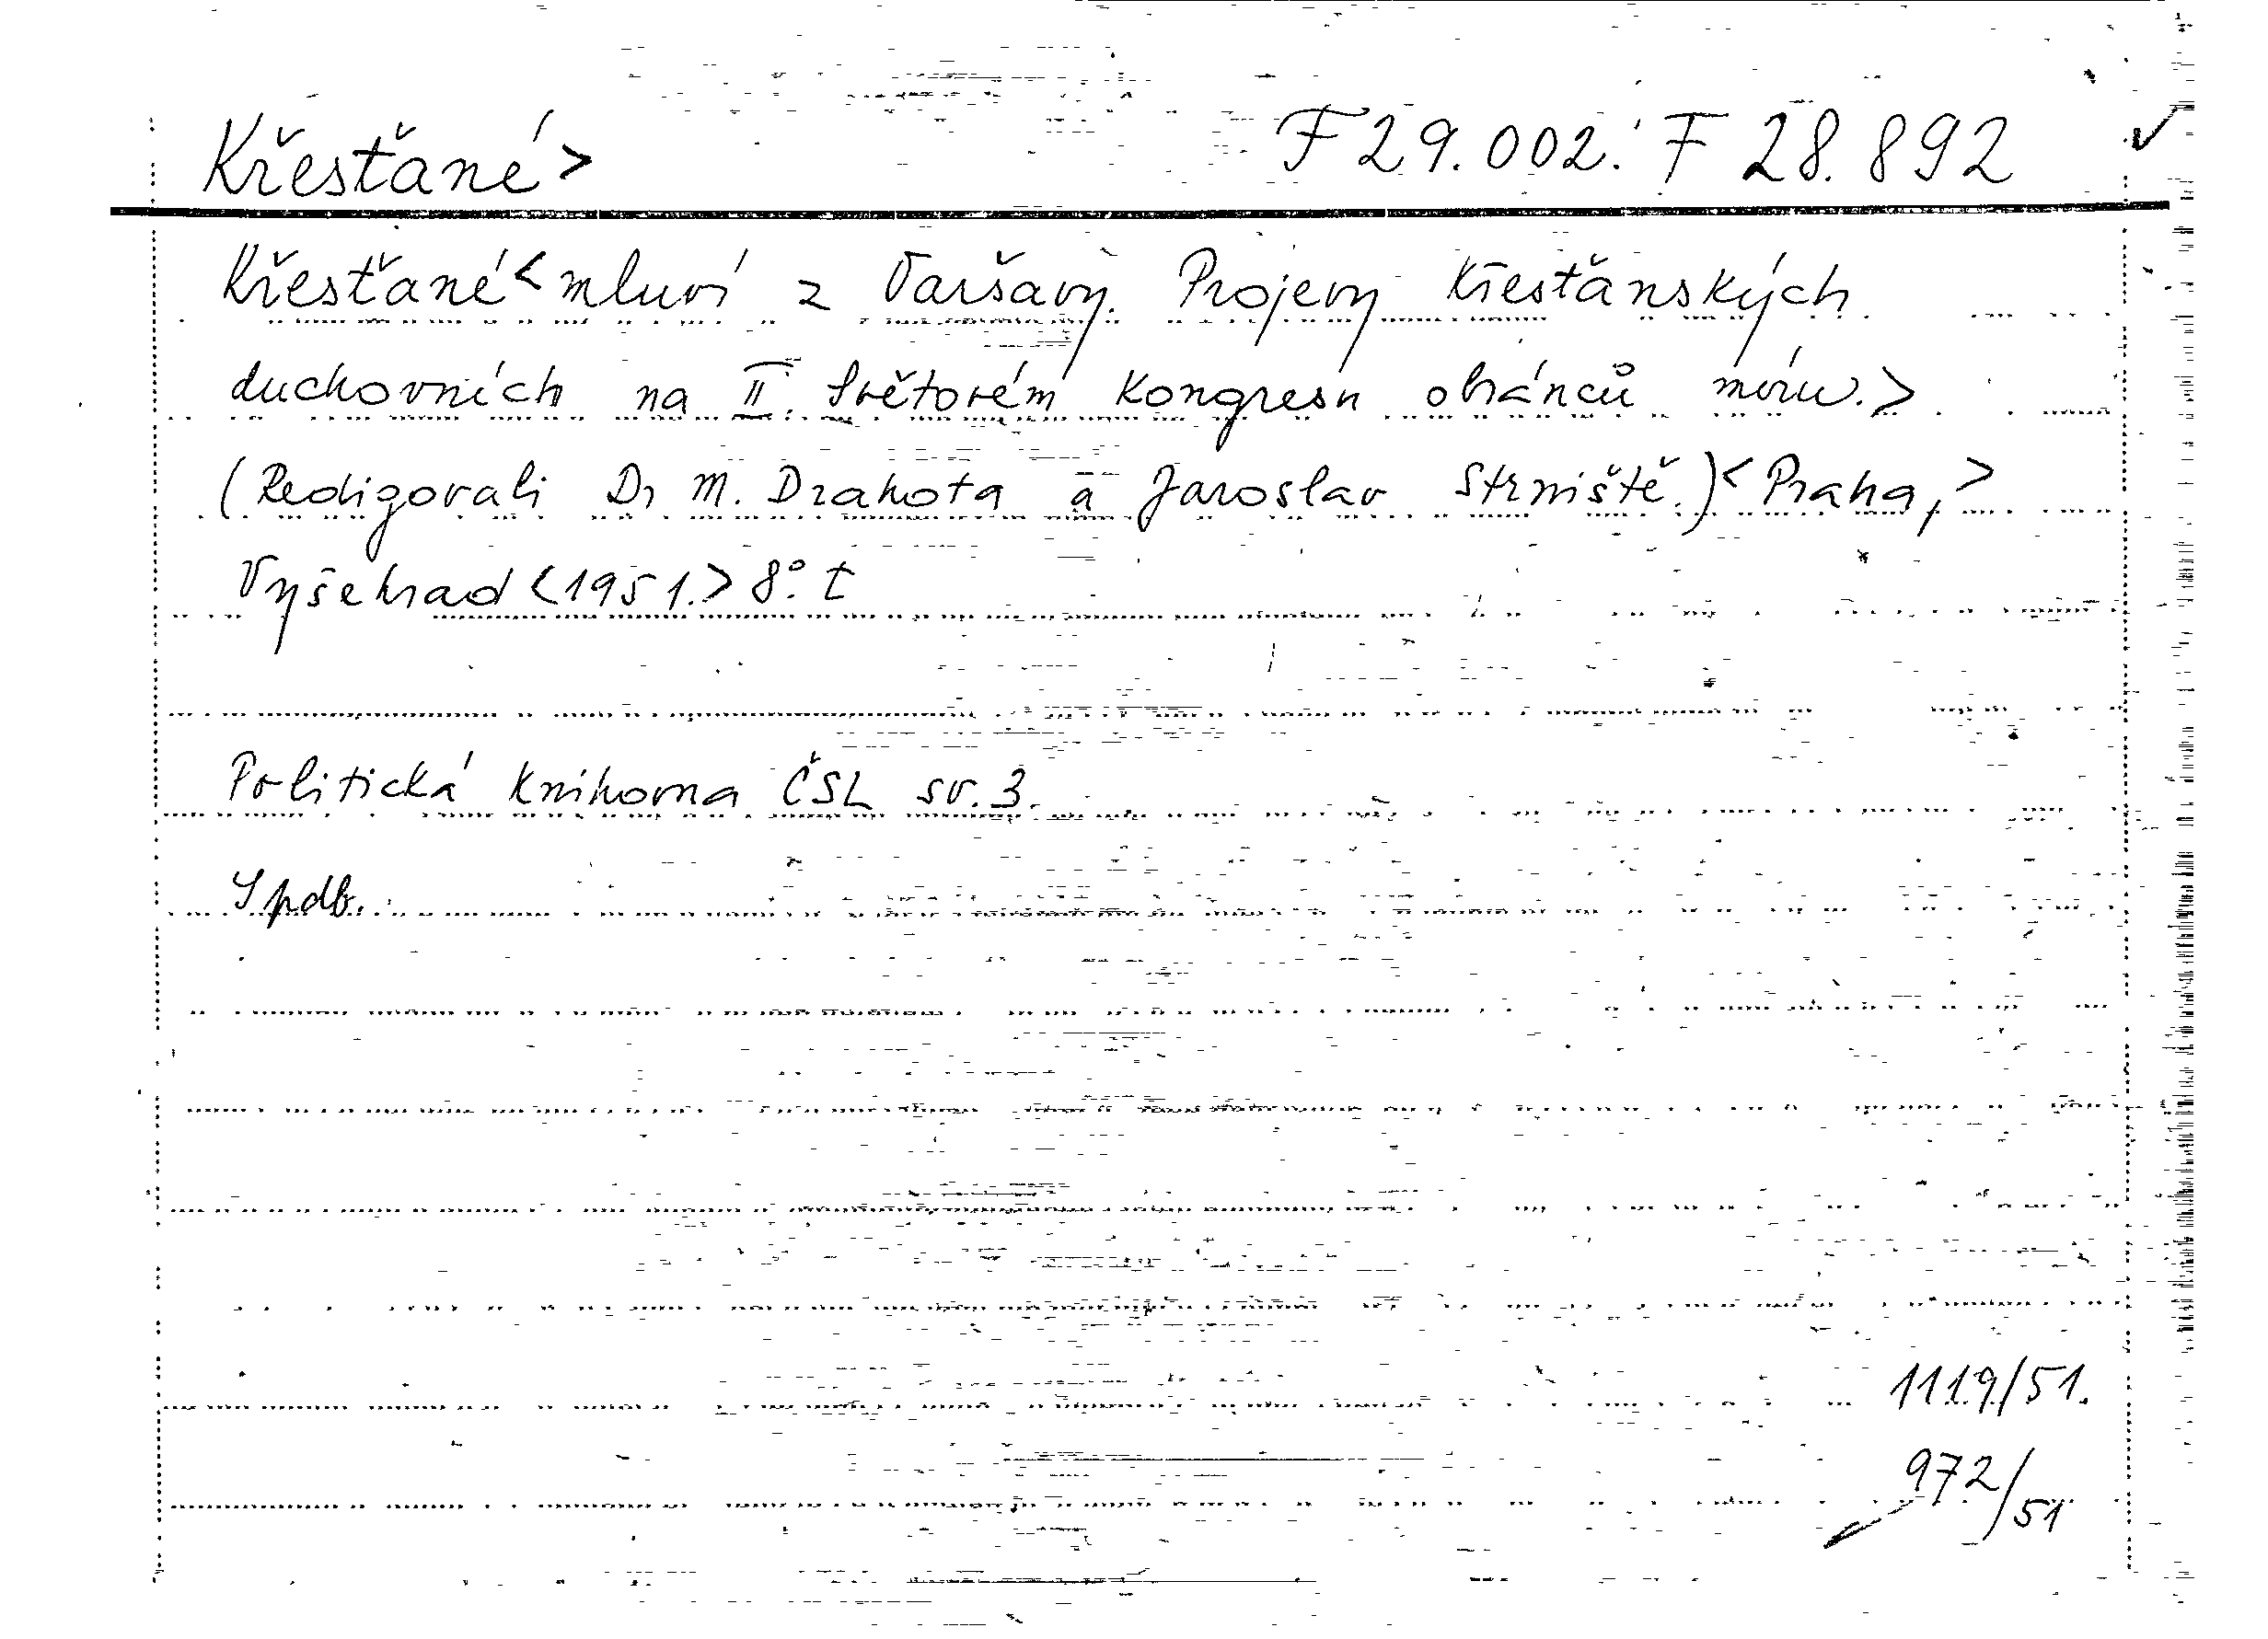 Křesťané> F 29.002. F 28.892 ✓
Křesťané<mluví z Varšavy. Projevy křesťánských
duchovních na II. Světovém kongresu obránců míru.>
(Redigovali Dr M. Drahota a Jaroslav Strniště.)<Praha,>
Vyšehrad<1951.>8°. t
Politická knihovna ČSL sv. 3.
Ypdb.
1119/51.
972/51